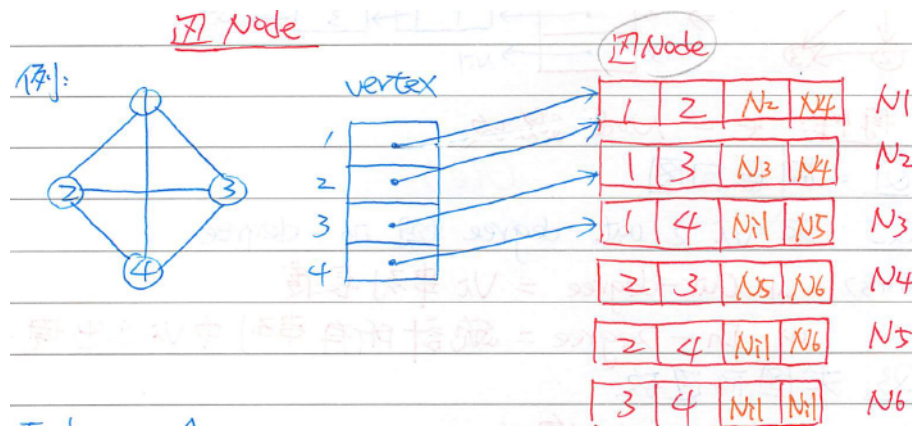 边 Node
例:
边Node
vertex
1
2
3
4
1
2
3
4
1 2 N2 N4 N1
1 3 N3 N4 N2
1 4 Nil N5 N3
2 3 N5 N6 N4
2 4 Nil N6 N5
3 4 Nil Nil N6